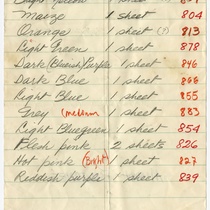 Bright Yellow 1 sheet
Maize 1 sheet 804
Orange 1 sheet (?) 813
Light Green 1 sheet 878
Dark (Bluish) Purple 1 sheet 846
Dark Blue 1 sheet 866
Light Blue 1 sheet 855
Grey (medium) 1 sheet 883
Light Bluegreen 1 sheet 854
Flesh pink 2 sheets 826
Hot pink (Bright) 1 sheet 827
Reddish purple 1 sheet 839